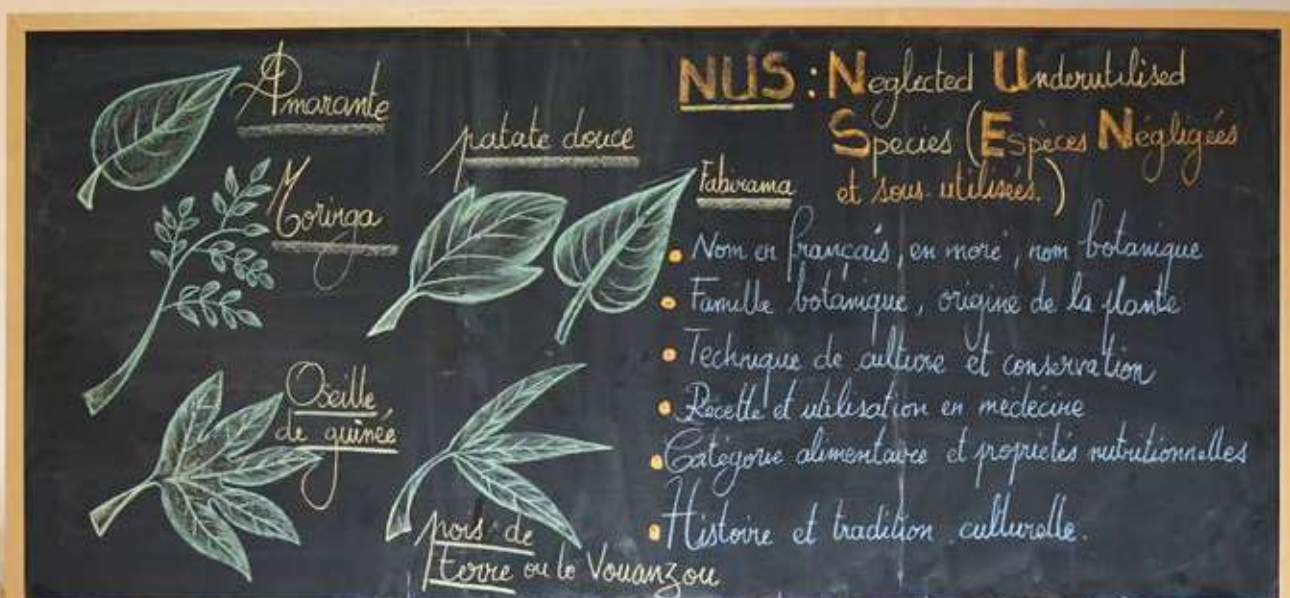 Amarante
Moringa
patate douce
Fabirama
Oseille
de guinée
pois de
terre ou le Vouanzou
NUS : Neglected Underutilised
Species (Espèces Négligées
et sous-utilisées.)
• Nom en français, en moré, nom botanique
• Famille botanique, origine de la plante
• Technique de culture et conservation
• Recette et utilisation en médécine
• Catégorie alimentaire et propriétés nutritionnelles
• Histoire et tradition culturelle.